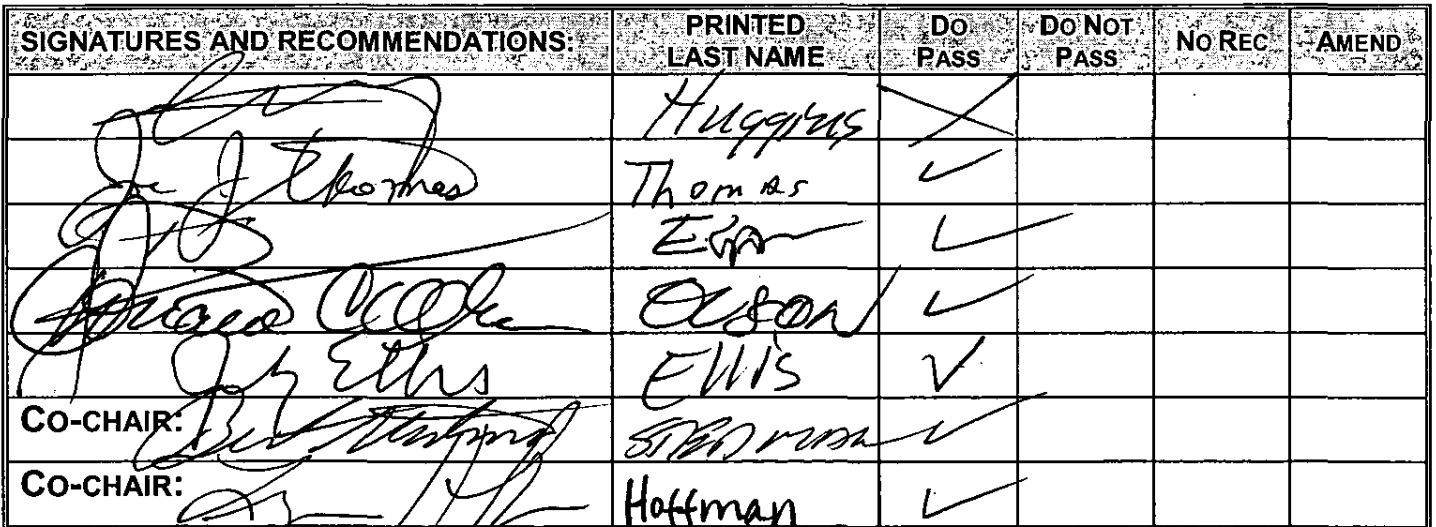 SIGNATURES AND RECOMMENDATIONS: PRINTED LAST NAME DO PASS DO NOT PASS NO REC AMEND
Huggins
Joe J Thomas Thomas
Olson
Johnny Ellis Ellis
CO-CHAIR: Stedman
CO-CHAIR: Hoffman